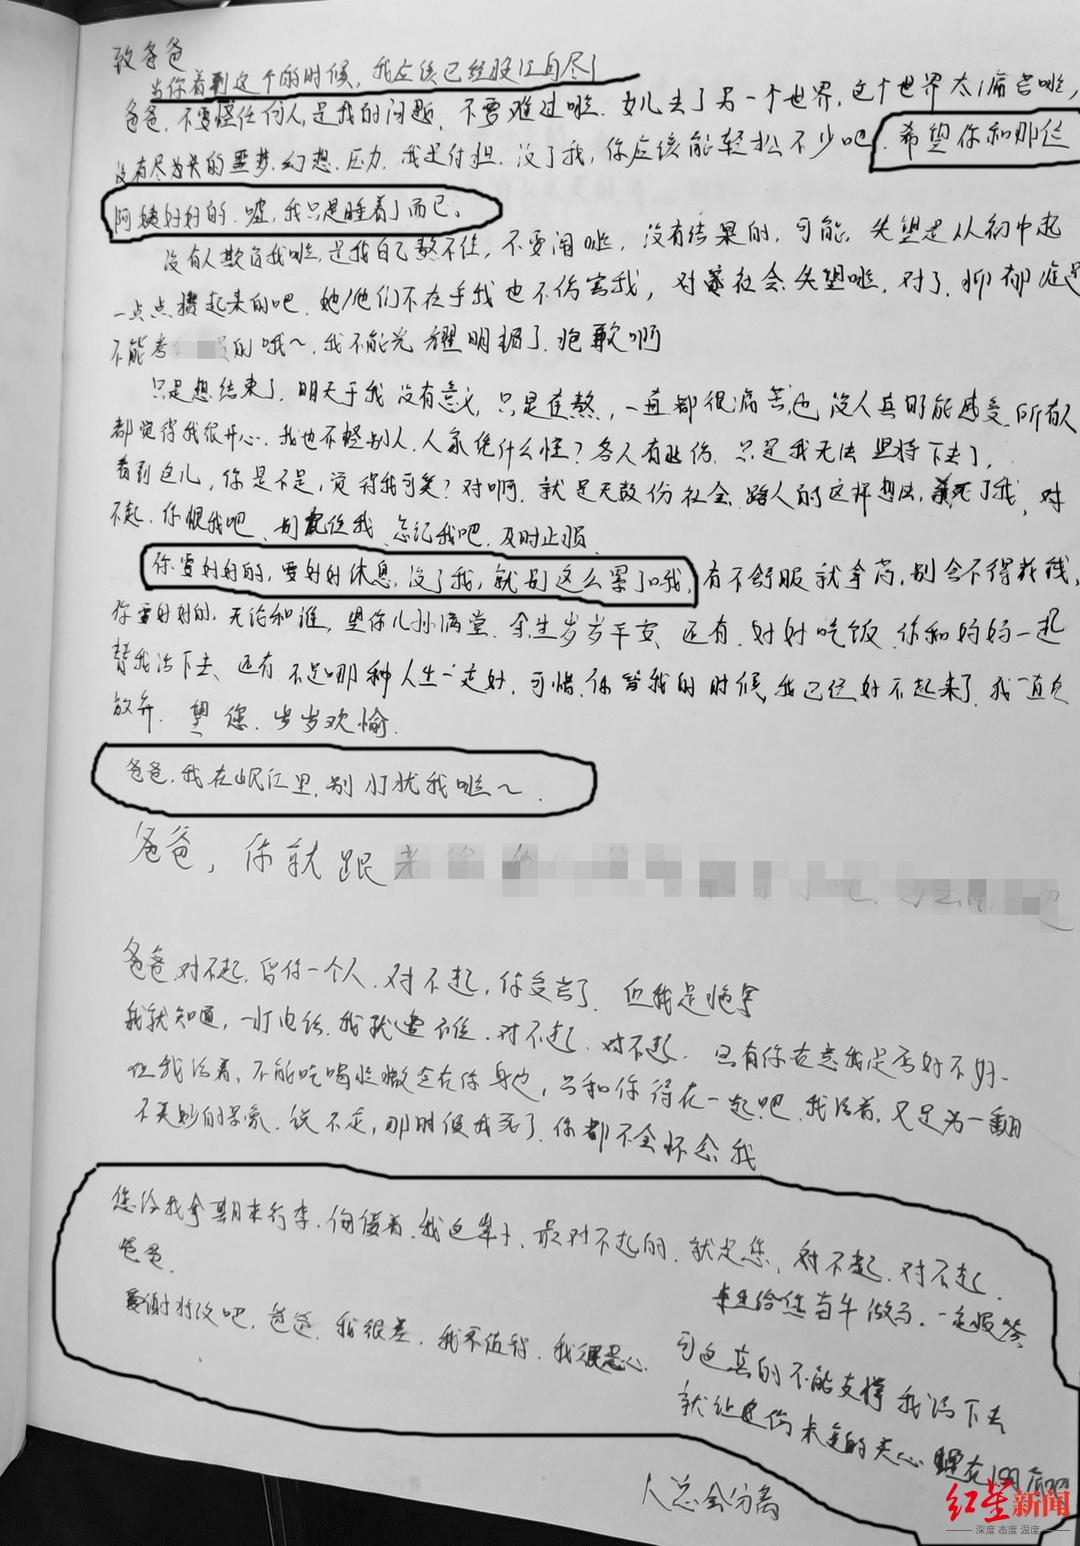 致爸爸
当你看到这个的时候，我应该已经投江自尽了
爸爸，不要怪任何人，是我的问题，不要难过啦，女儿去了另一个世界，这个世界太痛苦啦，
没有尽头的噩梦、幻想、压力，我是付担，没了我，你应该能轻松不少吧，希望你和那位
阿姨好好的，嘘，我只是睡着了而已。
没有人欺负我啦，是我自己熬不住，不要闹啦，没有结果的，可能，失望是从初中起
一点点攒起来的吧，她/他们不在乎我也不伤害我，对社会失望啦，对了，抑郁症是
不能考 的哦～，我不能光耀明媚了，抱歉啊
只是想结束了，明天于我没有意义，只是在熬，一直都很痛苦也没人真的能感受，所有人
都觉得我很开心，我也不怪别人，人家凭什么怪？各人有悲伤，只是我无法坚持下去了，
看到这儿，你是不是，觉得我可笑？对啊，就是大部份社会路人的这样想法，死了我，对
不起，你恨我吧，别记住我，忘记我吧，及时止损
你要好好的，要好好休息，没了我，就别这么累了哦，有不舒服就拿药，别舍不得花钱，
你要好好的，无论和谁，望你儿孙满堂，余生岁岁平安，还有，好好吃饭，你和妈妈一起
替我活下去，还有，不是哪种人生一走好，可惜，你管我的时候，我已经好不起来了，我一直在
放弃，望您，岁岁欢愉
爸爸，我在岷江里，别打扰我啦～
爸爸，你就跟
爸爸，对不起，留你一个人，对不起，你受苦了，但我是拖拿
我就知道，一打电话，我就遭谁，对不起，对不起，只有你在意我是否好不好
但我活着，不能吃喝 会在你身边，只和你得在一起吧，我活着，又是另一翻
不美妙的景象，说不定，那时候我死了，你都不会怀念我
您给我拿期末行李，佝偻着，我这辈子，最对不起的，就是您，对不起，对不起，
爸爸，
来生给您当牛做马，一定报答
谢 没吧，爸爸，我很差，我不值得，我很恶心
可这真的不能支撑我活下去
就让这份未完的关心 在
人总会分离
红星新闻
深度 态度 温度